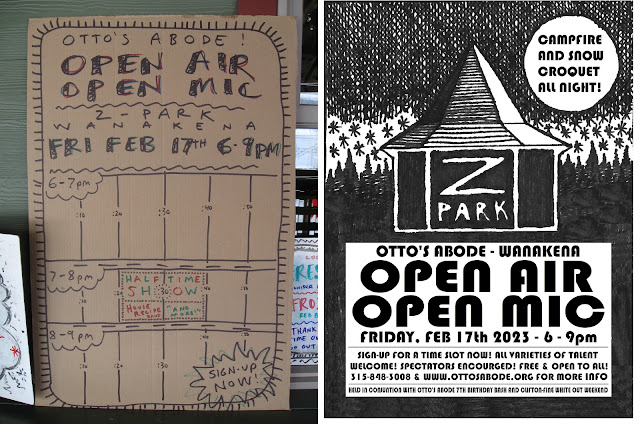 OTTO'S ABODE!
OPEN AIR
OPEN MIC
Z-PARK
WANAKENA
FRI FEB 17TH 6-9PM
6-7pm
:10 :20 :30 :40 :50
7-8pm
HALF TIME
SHOW
:30
HOUSE
RECIPE
BAND
AND
MORE!
8-9pm
:10 :20 :30
SIGN-UP
NOW!
RES
FRO
FEB
THANK
TIME
OUT
CAMPFIRE
AND SNOW
CROQUET
ALL NIGHT!
Z
PARK
OTTO'S ABODE - WANAKENA
OPEN AIR
OPEN MIC
FRIDAY, FEB 17th 2023 - 6 - 9pm
SIGN-UP FOR A TIME SLOT NOW! ALL VARIETIES OF TALENT
WELCOME! SPECTATORS ENCOURGED! FREE & OPEN TO ALL!
315-848-3008 & WWW.OTTOSABODE.ORG FOR MORE INFO
HELD IN CONJUNTION WITH OTTO'S ABODE 7TH BIRTHDAY BASH AND CLIFTON-FINE WHITE OUT WEEKEND